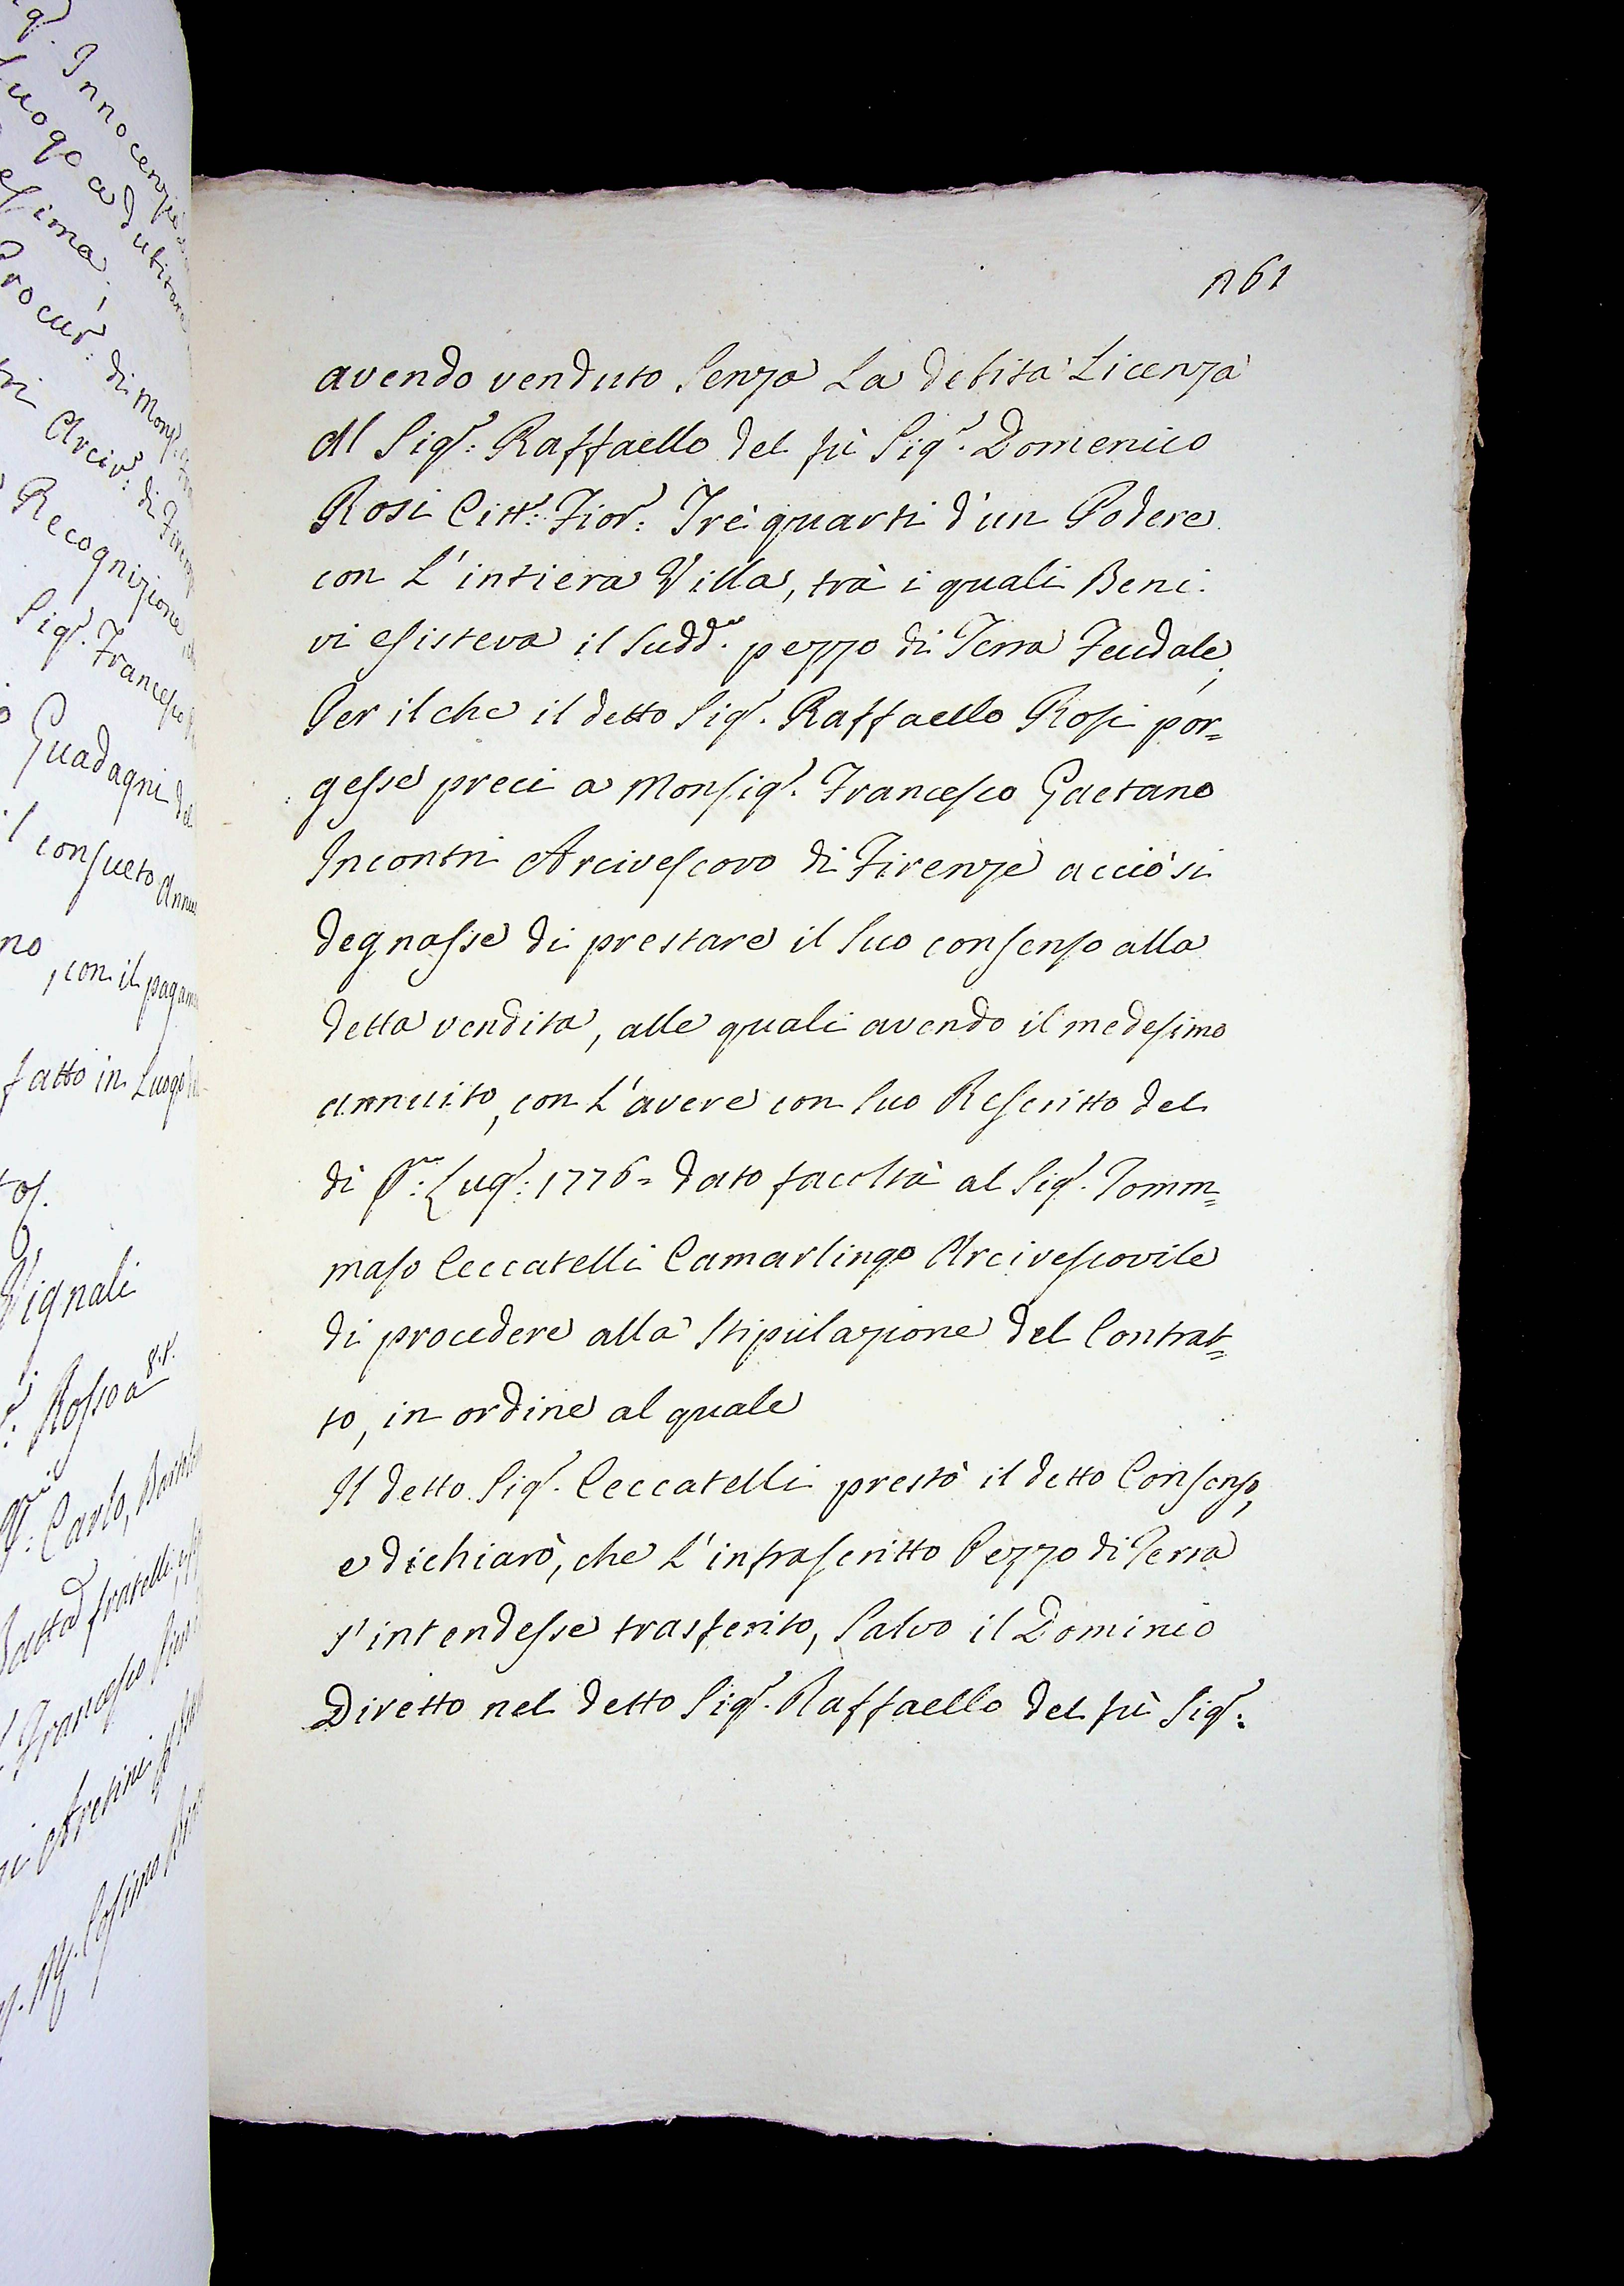 n61
avendo venduto Senza La debita Licenza
Al Sigr: Raffaello del fù Sigr. Domenico
Rosi Citt: Fior: Trè quarti d'un Podere
con L'intiera Villa, trà i quali Beni
vi esisteva il Sudd.o pezzo di Terra Feudale;
Per il che il detto Sigr. Raffaello Rosi por=
gesse preci a Monsigr. Francesco Gaetano
Incontri Arcivescovo di Firenze acciò si
degnasse di prestare il Suo consenso alla
detta vendita, alle quali avendo il medesimo
annuito, con L'avere con Suo Rescritto del
dì Lugo: 1776= dato facoltà al Sigr. Tomm=
maso Ceccatelli Camarlingo Arcivescovile
di procedere alla Stipulazione del Contrat=
to, in ordine al quale
Il detto Sigr. Ceccatelli prestò il detto Consenso,
e dichiarò, che L'infrascritto Pezzo di Terra
s'intendesse trasferito, Salvo il Dominio
Diretto nel detto Sigr. Raffaello del fù Sigr.
Innocenzio
Luogo ad
Procur: di Monsr.
Arciv: di
Recognizione
Sigr. Francesco
Guadagni del
il consueto
no, con il
fatto in Luogo
Vignali
Rosso a
Carlo,
fratelli
Francesco
Aretini
Cosimo